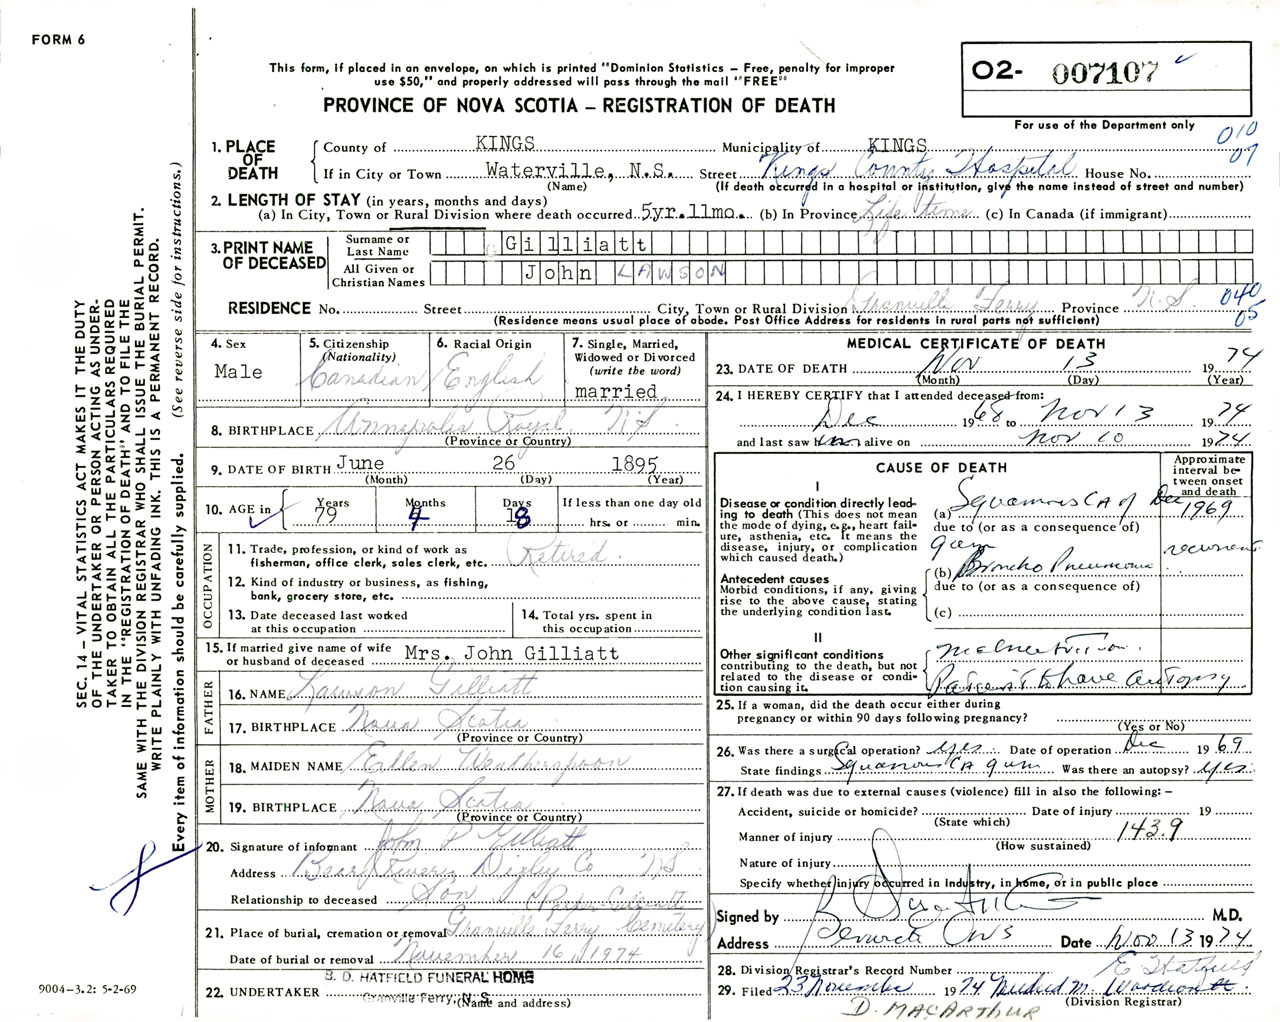 FORM 6
This form, if placed in an envelope, on which is printed "Dominion Statistics – Free, penalty for improper
use $50," and properly addressed will pass through the mail "FREE"
PROVINCE OF NOVA SCOTIA – REGISTRATION OF DEATH
O2- 007107
For use of the Department only
010
07
1. PLACE OF DEATH
County of KINGS Municipality of KINGS
If in City or Town Waterville, N.S. Street Kings County Hospital House No.
(Name) (If death occurred in a hospital or institution, give the name instead of street and number)
2. LENGTH OF STAY (in years, months and days)
(a) In City, Town or Rural Division where death occurred 5yr.11mo. (b) In Province Life time (c) In Canada (if immigrant)
3. PRINT NAME OF DECEASED
Surname or Last Name Gilliatt
All Given or Christian Names John LAWSON
RESIDENCE No. Street City, Town or Rural Division Granville Ferry Province N.S. 040
05
(Residence means usual place of abode. Post Office Address for residents in rural parts not sufficient)
4. Sex Male
5. Citizenship (Nationality) Canadian
6. Racial Origin English
7. Single, Married, Widowed or Divorced (write the word) married
8. BIRTHPLACE Annapolis Royal N S
(Province or Country)
9. DATE OF BIRTH June 26 1895
(Month) (Day) (Year)
10. AGE in Years 79 Months 4 Days 18 If less than one day old hrs. or min.
OCCUPATION
11. Trade, profession, or kind of work as fisherman, office clerk, sales clerk, etc. Retired.
12. Kind of industry or business, as fishing, bank, grocery store, etc.
13. Date deceased last worked at this occupation
14. Total yrs. spent in this occupation
15. If married give name of wife or husband of deceased Mrs. John Gilliatt
FATHER
16. NAME Lawson Gilliatt
17. BIRTHPLACE Nova Scotia
(Province or Country)
MOTHER
18. MAIDEN NAME Ellen Weatherspoon
19. BIRTHPLACE Nova Scotia
(Province or Country)
20. Signature of informant John P Gilliatt
Address Bear River Digby Co NS
Relationship to deceased Son
21. Place of burial, cremation or removal Granville Ferry Cemetery
Date of burial or removal November 16, 1974
B. D. HATFIELD FUNERAL HOME
22. UNDERTAKER Granville Ferry, N. S.
(Name and address)
MEDICAL CERTIFICATE OF DEATH
23. DATE OF DEATH Nov 13 1974
(Month) (Day) (Year)
24. I HEREBY CERTIFY that I attended deceased from:
Dec 1968 to Nov 13 1974
and last saw him alive on Nov 10 1974
CAUSE OF DEATH
Approximate interval between onset and death
I
Disease or condition directly leading to death (This does not mean the mode of dying, e.g., heart failure, asthenia, etc. It means the disease, injury, or complication which caused death.)
(a) Squamous CA of Dec 1969
due to (or as a consequence of)
gum
(b) Broncho Pneumonia
due to (or as a consequence of)
(c)
Antecedent causes
Morbid conditions, if any, giving rise to the above cause, stating the underlying condition last.
II
Other significant conditions contributing to the death, but not related to the disease or condition causing it.
Malnutrition.
Patient to have autopsy
25. If a woman, did the death occur either during pregnancy or within 90 days following pregnancy?
(Yes or No)
26. Was there a surgical operation? yes Date of operation Dec 1969
State findings Squamous CA gum Was there an autopsy? yes
27. If death was due to external causes (violence) fill in also the following: –
Accident, suicide or homicide? Date of injury 19
(State which)
Manner of injury 143.9
(How sustained)
Nature of injury
Specify whether injury occurred in Industry, in home, or in public place
Signed by M.D.
Address Berwick NS Date Nov 13 1974
28. Division Registrar's Record Number
29. Filed 23 November 1974
(Division Registrar)
D. MACARTHUR
SEC. 14 – VITAL STATISTICS ACT MAKES IT THE DUTY
OF THE UNDERTAKER OR PERSON ACTING AS UNDER-
TAKER TO OBTAIN ALL THE PARTICULARS REQUIRED
IN THE "REGISTRATION OF DEATH" AND TO FILE THE
SAME WITH THE DIVISION REGISTRAR WHO SHALL ISSUE THE BURIAL PERMIT.
WRITE PLAINLY WITH UNFADING INK. THIS IS A PERMANENT RECORD.
Every item of information should be carefully supplied. (See reverse side for instructions.)
9004–3.2: 5-2-69